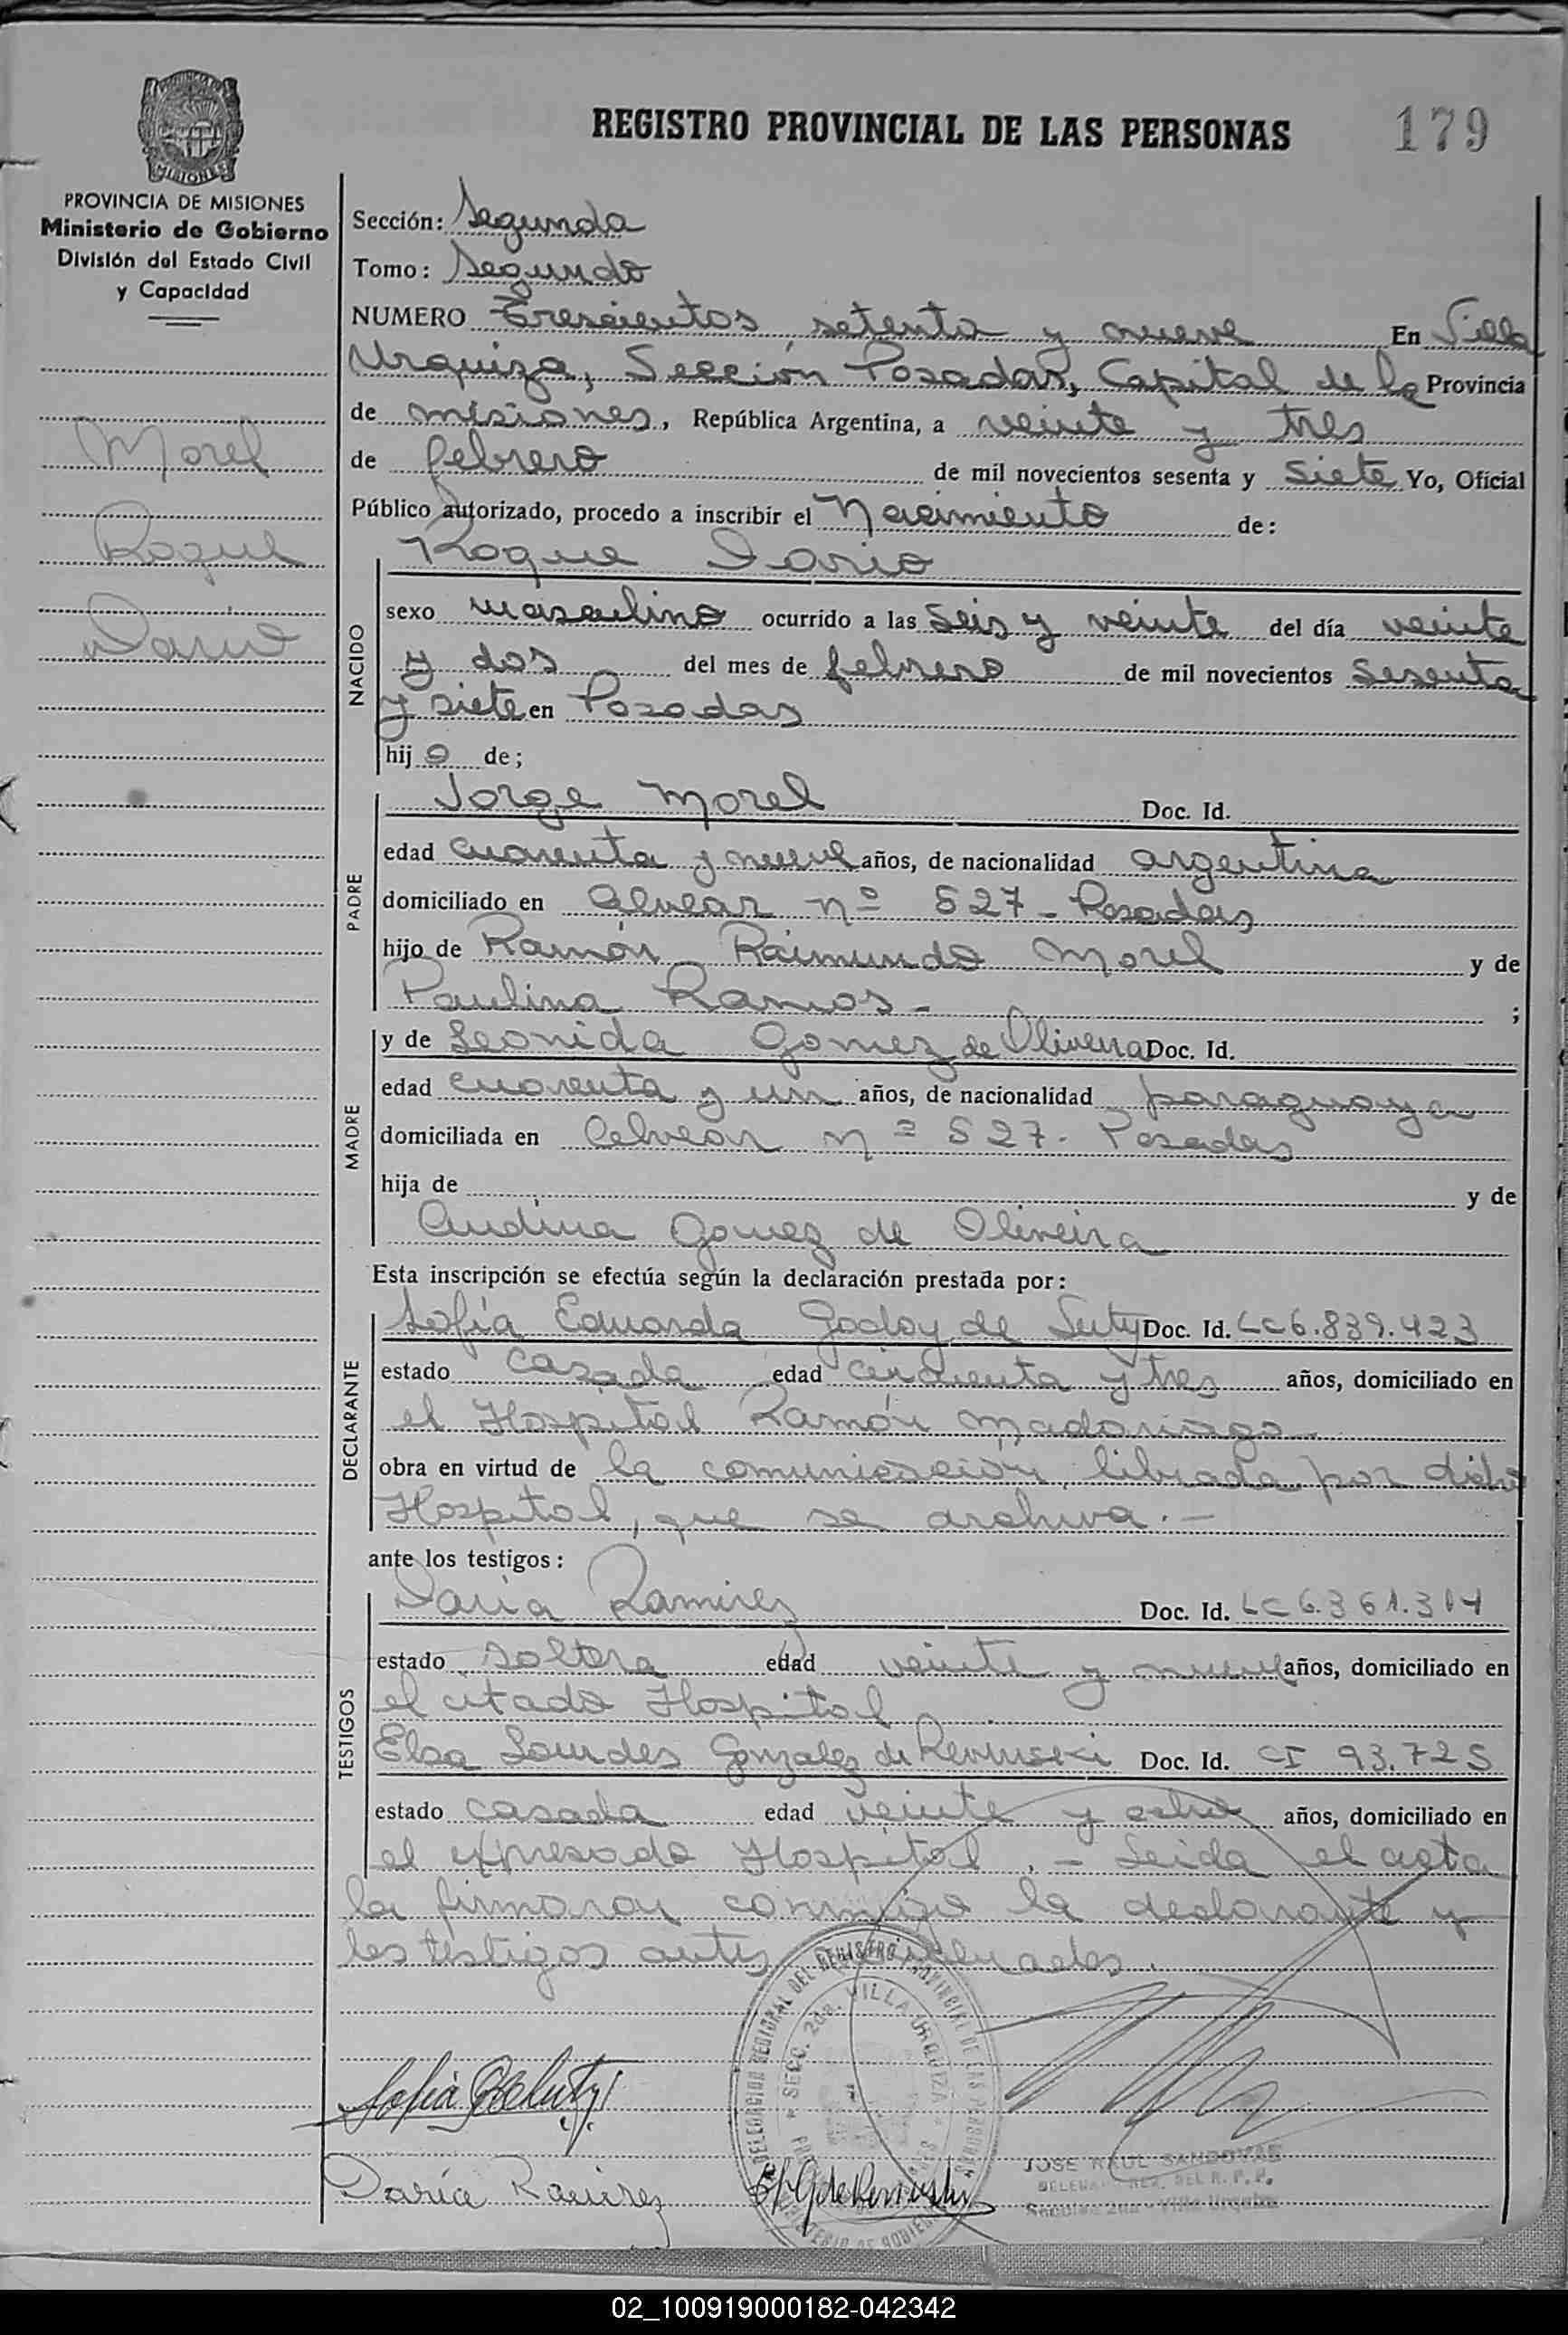 REGISTRO PROVINCIAL DE LAS PERSONAS
179
MISIONES
PROVINCIA DE MISIONES
Ministerio de Gobierno
División del Estado Civil
y Capacidad
Morel
Roque
Dario
Sección: Segunda
Tomo: Segundo
NUMERO Trescientos setenta y nueve En Villa
Urquiza, Sección Posadas, Capital de la Provincia
de misiones, República Argentina, a veinte y tres
de febrero de mil novecientos sesenta y siete Yo, Oficial
Público autorizado, procedo a inscribir el Nacimiento de:
NACIDO
Roque Dario
sexo masculino ocurrido a las seis y veinte del día veinte
y dos del mes de febrero de mil novecientos sesenta
y siete en Posadas
hij o de;
PADRE
Jorge Morel Doc. Id.
edad cuarenta y nueve años, de nacionalidad argentina
domiciliado en Alvear nº 527 - Posadas
hijo de Ramón Raimundo Morel y de
Paulina Ramos - ;
MADRE
y de Leonida Gomez de Oliveira Doc. Id.
edad cuarenta y un años, de nacionalidad paraguaya
domiciliada en Alvear nº 527 - Posadas
hija de y de
Andina Gomez de Oliveira
Esta inscripción se efectúa según la declaración prestada por:
DECLARANTE
Sofía Eduarda Godoy de Doc. Id. LC 6.839.423
estado casada edad cincuenta y tres años, domiciliado en
el Hospital Ramón Madariaga
obra en virtud de la comunicación librada por dicho
Hospital, que se archiva. -
ante los testigos:
TESTIGOS
Daría Ramirez Doc. Id. LC 6.361.314
estado soltera edad veinte y nueve años, domiciliado en
el citado Hospital
Elsa Lourdes Gonzalez de Doc. Id. CI 93.725
estado casada edad veinte y ocho años, domiciliado en
el expresado Hospital. - Leida el acta
la firmaron conmigo la declarante y
los testigos antes
DELEGACION REGIONAL DEL REGISTRO PROVINCIAL DE LAS PERSONAS
SECC. 2da. VILLA URQUIZA
Daría Ramirez
JOSE RAUL SANDOVAL
DELEGADO REG. DEL R. P. P.
Sección 2da - Villa Urquiza
02_100919000182-042342